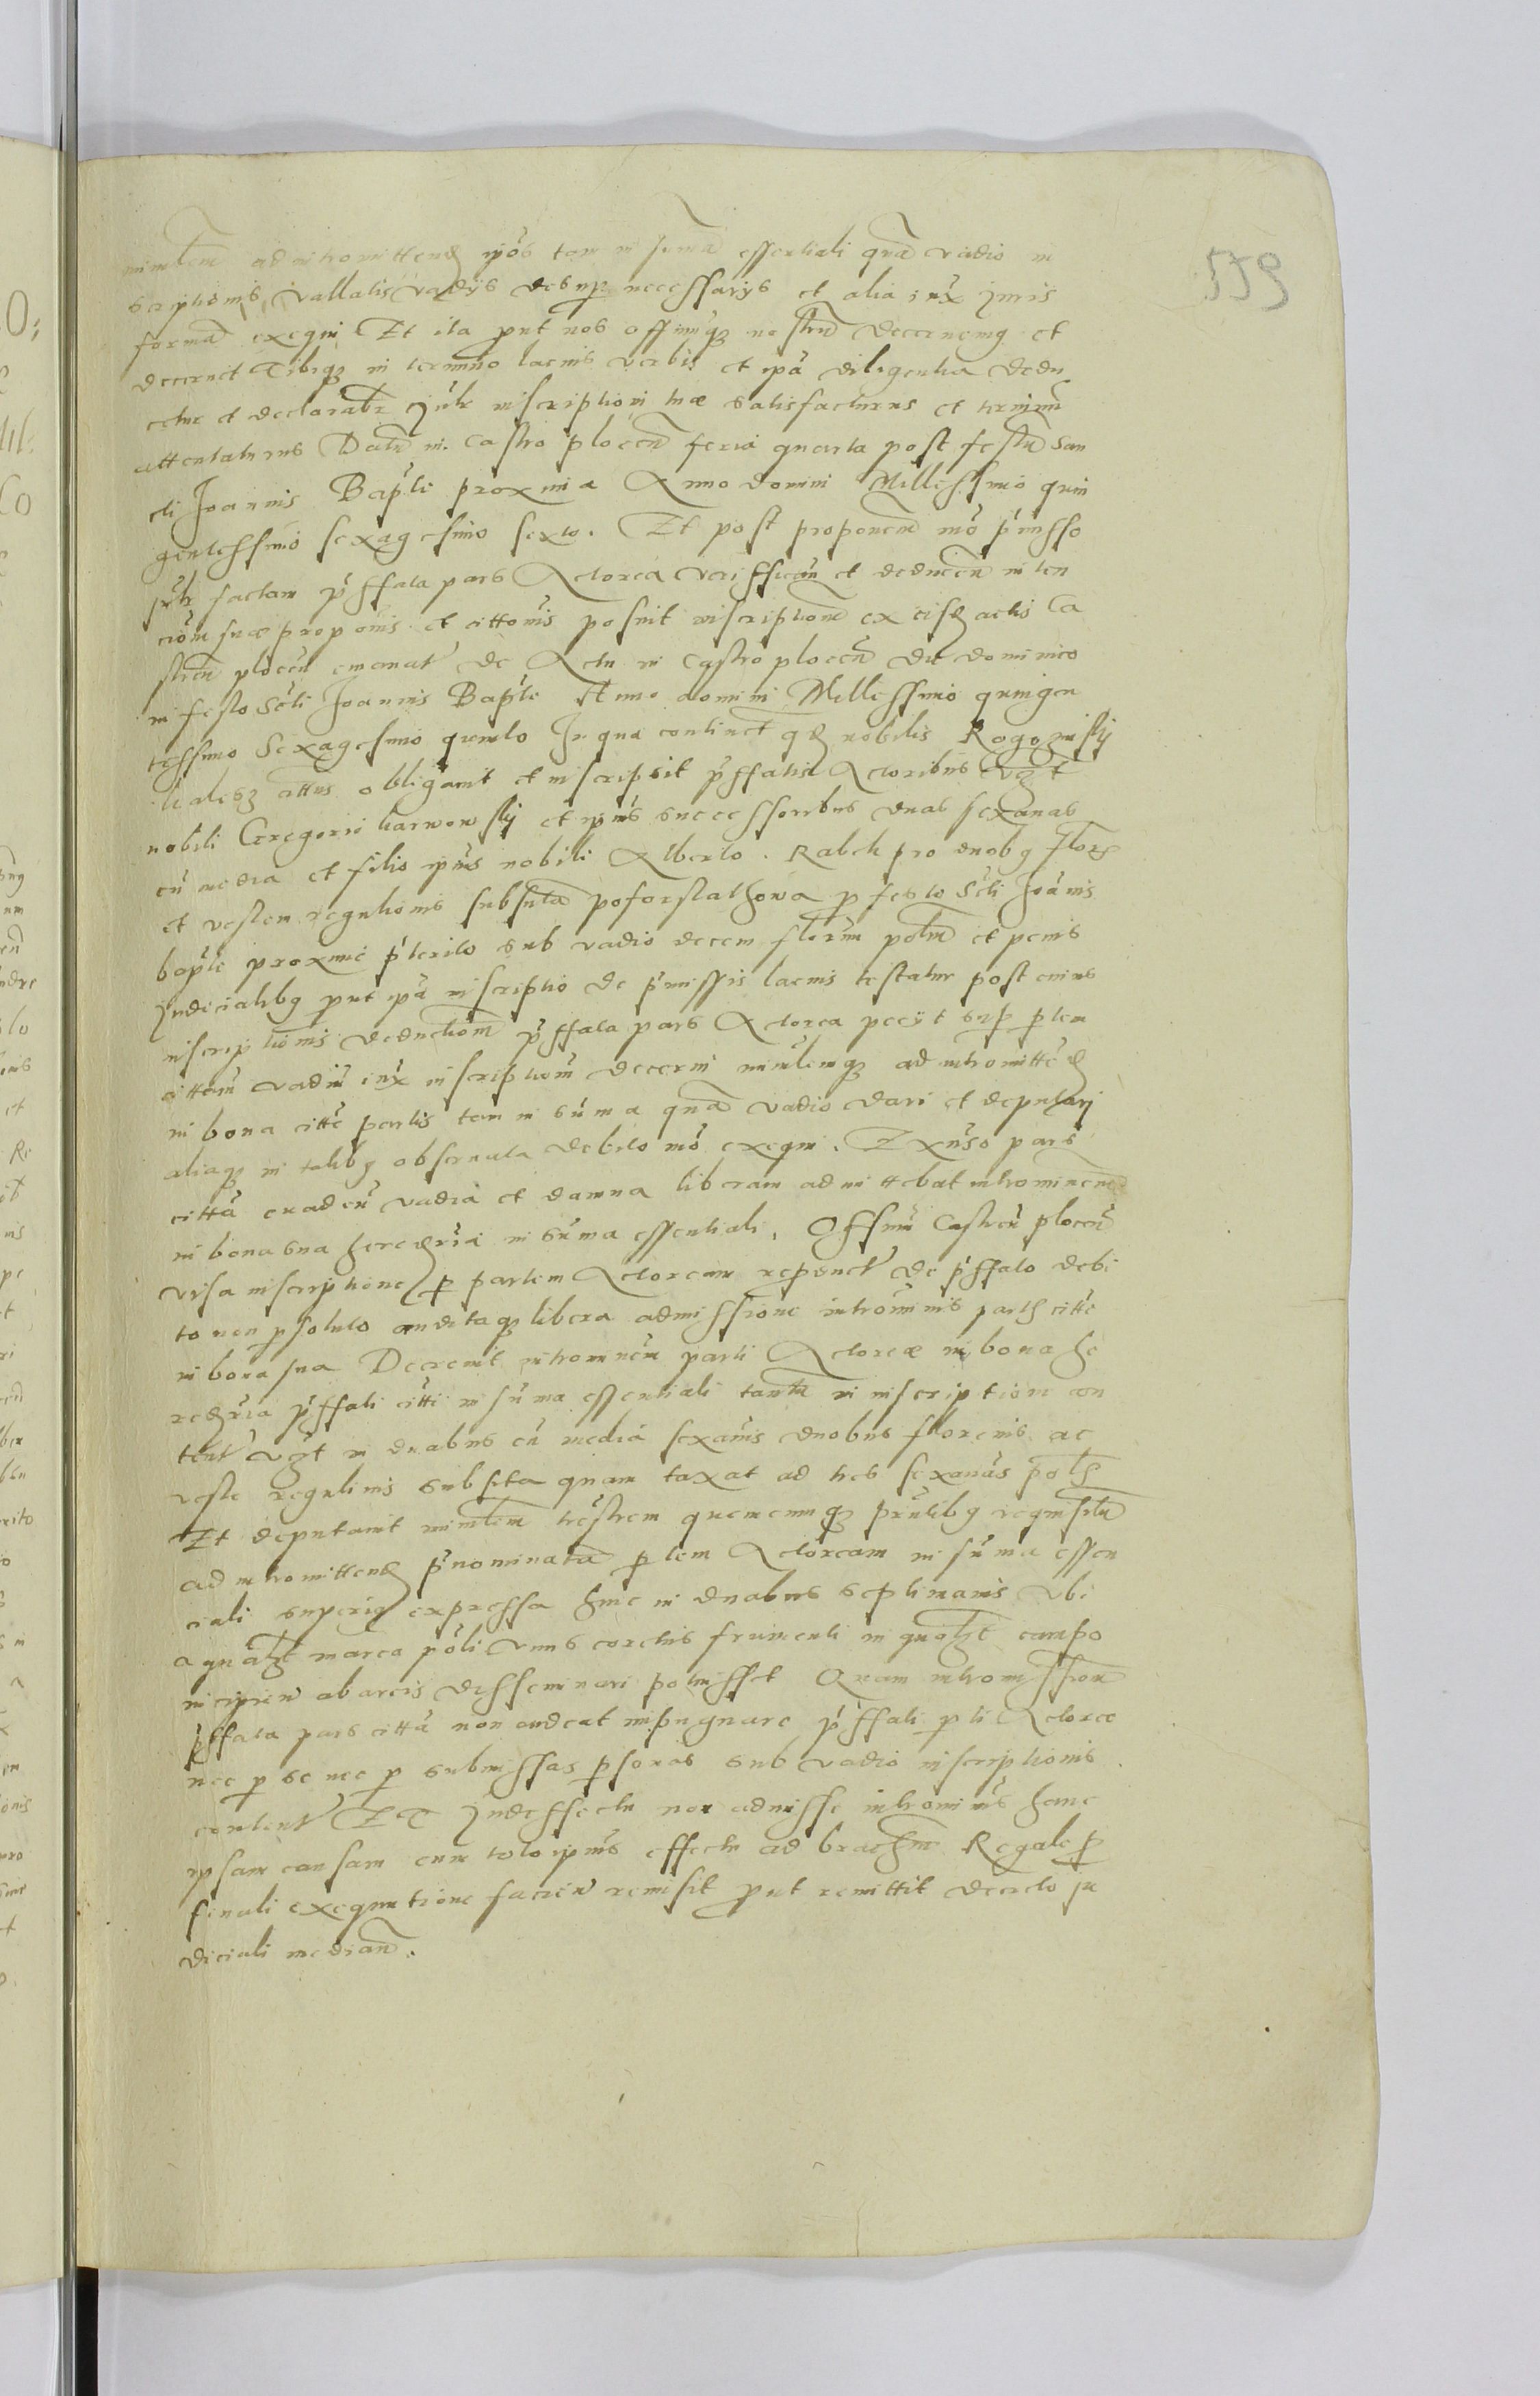 559
ministerialem ad intromittend ipos tam in suma essentiali qua vadio in
scriptionis vallatis vadijs desup necessarijs et alia iux juris
forma exequi Et ita put nos offmq nostru decernemg et
decernet Tibiq in termino lacius verbis et ipa diligentia dedu
cetur et declarabr Jur inscriptioni tuæ satisfacturus et terminu
attentaturus Datu in castro plocen feria quarta post festu san
cti Joannis Bapte proxima Anno domini Millessimo quin
gentessimo sexagesimo sexto. Et post proponem mo pmisso
Jur factam pffata pars Actorea veriffican et deducen inten
ciom suæ proponis et cittonis posuit inscriptiom ex eisd actis Ca
stren plocen emanat de Actu in Castro plocen die dominico
in festo Scti Joannis Bapte Anno domini Millessimo quingen
tessimo Sexagesimo quinto In qua continet qd nobilis Rogozinsky
cittus obligavit et inscripsit pffatis Actoribus vzt
nobili Gregorio karwowsky et ipius successoribus duas sexanas
cu media et filio ipius nobili Alberto. Rabek pro duobg flor
et vestem regulionis subsuta poforstathowa p festo Scti Joanis
bapte proxime pterito sub vadio decem floren polm et penis
Judicialibg put ipa inscriptio de pmissis lacius testatur post cuius
inscriptionis deductiom pffata pars Actorea pecijt sup ptem
cittam vadiu iux inscriptiom decerni minrlemq ad intromitted
in bona citte partis tam in suma qua vadio dari et deputari
aliaq in talibg observata debito mo exequi. Exuso pars
citta evaden vadia et damna liberam admittebat intromincm
in bona sua heredria in suma essentiali. Offm Castren plocen
visa inscriptione p partem Actoream reponet de pffato debi
to non psoluto auditaq libera admissione intromnis partis citte
in bona sua Decrevit intromncm parti Actoreæ in bona he
redria pffati citti in suma essentiali tantu in inscriptione con
tent vzt in duabus cu media sexanis duobus florenis ac
veste regulinis subsita quam taxat ad tres sexanas polh
Et deputavit minrlem trestrem quemcumq pntibg requisitu
ad intromittend pnominata ptem Actoream in suma essen
ciali superig expressa hinc in duabus septimanis vbi
aqualzt marca poli vnus corchus frumenti in qualzt campo
incipien ab arcis disseminari potuisset Quam intromissiom
pffata pars citta non audeat impugnare pffati pti Actoreæ
nec p se nec p submissas psonas sub vadio inscriptionis
content ET Jndeffectu non admisse intromnis hanc
ipsam causam cum toto ipius effectu ad brachm Regale p
finali exequutione facien remisit put remittit decreto ju
diciali median.